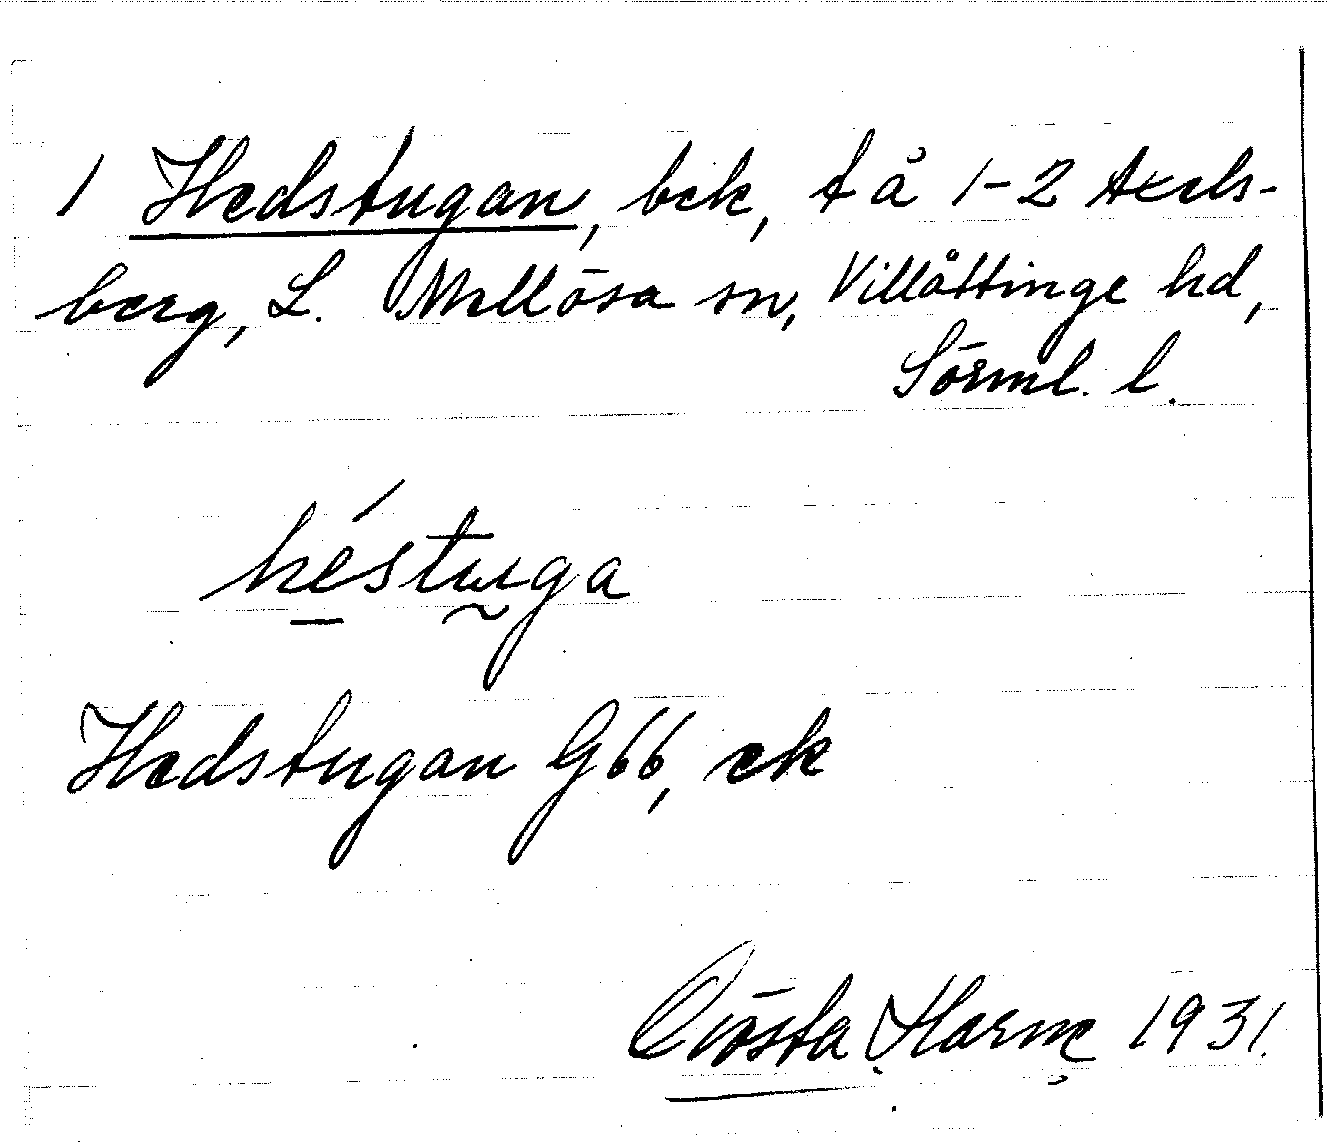 1 Hedstugan, bek, t å 1-2 Axels-
berg, L. Mellösa sn, Villåttinge hd,
Sörml. l.
héstuga
Hedstugan G66, ek
Gösta Harne 1931.